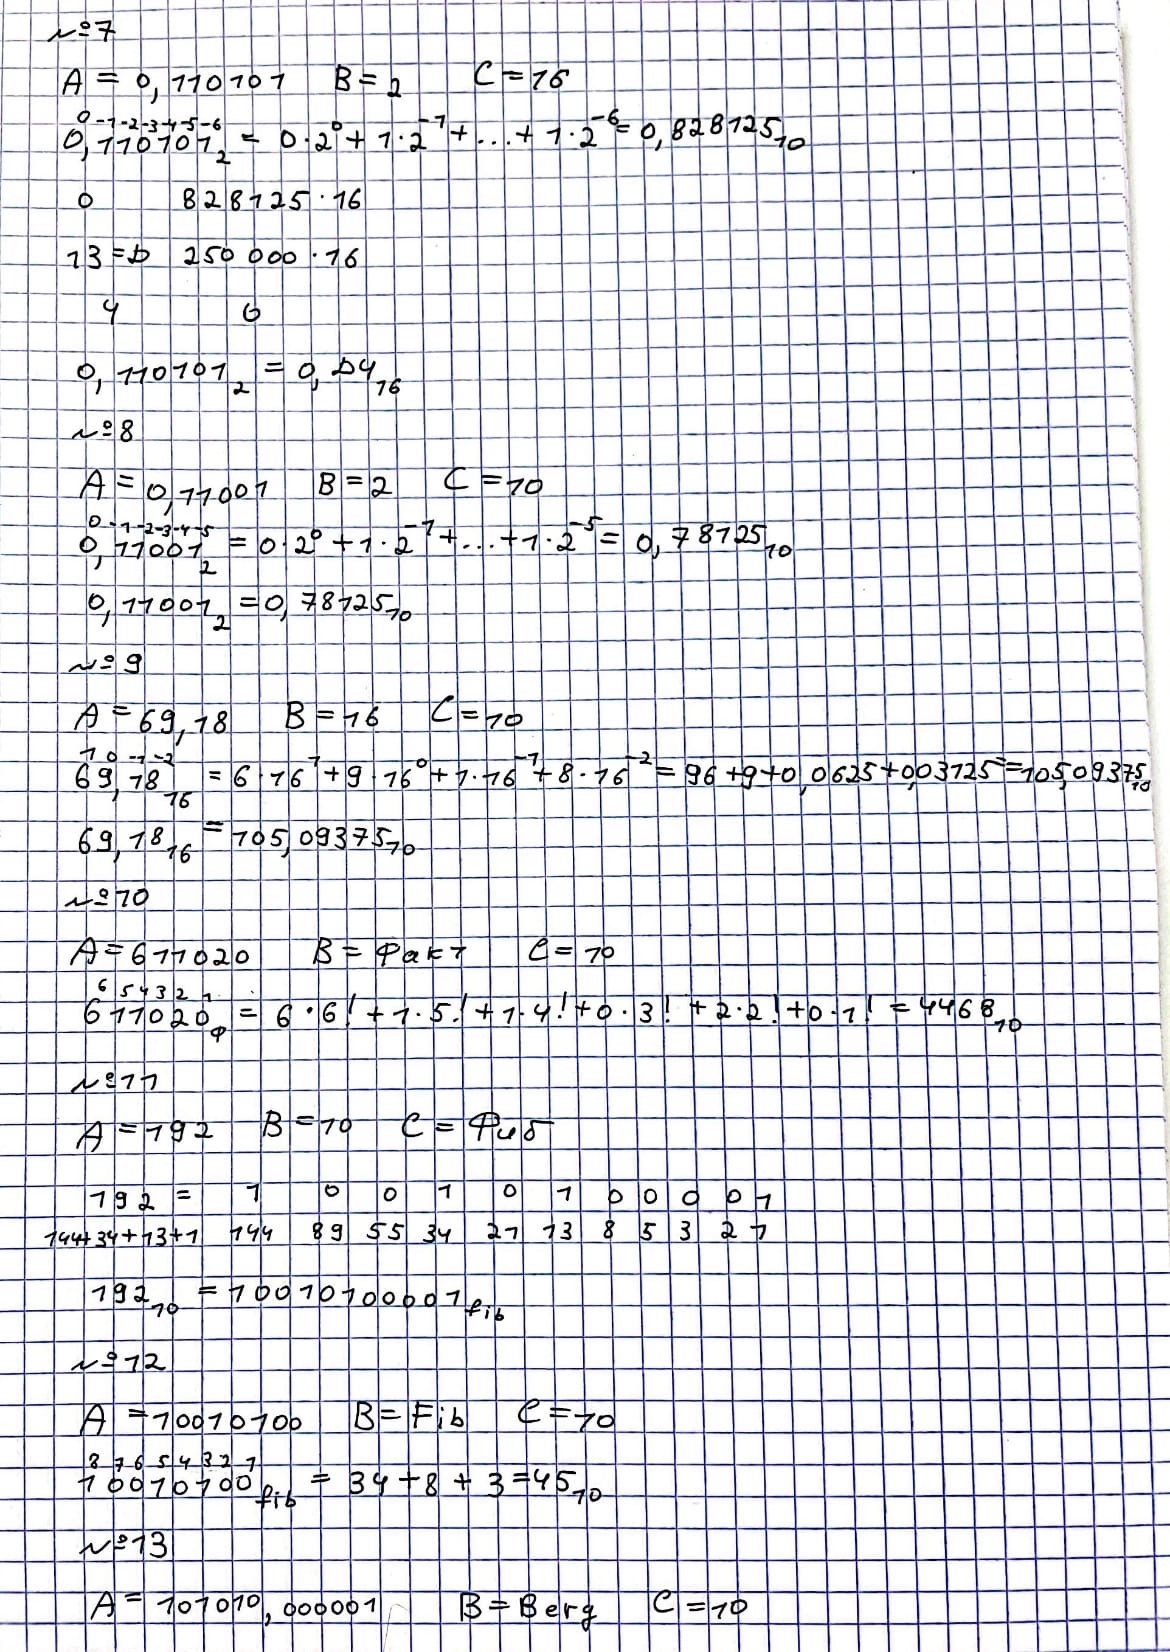 №7
A = 0,110101 B=2 C=16
0 -1 -2 -3 -4 -5 -6
0,110101₂ = 0·2⁰ + 1·2⁻¹ + ... + 1·2⁻⁶ = 0,828125₁₀
0 828125·16
13=D 250 000·16
4 0
0,110101₂ = 0,D4₁₆
№8
A = 0,11001 B=2 C=10
0 -1 -2 -3 -4 -5
0,11001₂ = 0·2⁰ + 1·2⁻¹ + ... + 1·2⁻⁵ = 0,78125₁₀
0,11001₂ = 0,78125₁₀
№9
A = 69,18 B=16 C=10
1 0 -1 -2
69,18₁₆ = 6·16¹ + 9·16⁰ + 1·16⁻¹ + 8·16⁻² = 96+9+0,0625+0,03125 = 105,09375₁₀
69,18₁₆ = 105,09375₁₀
№10
A = 611020 B = Факт C = 10
6 5 4 3 2 1
611020ф = 6·6! + 1·5! + 1·4! + 0·3! + 2·2! + 0·1! = 4468₁₀
№11
A = 192 B = 10 C = Фиб
192 = 1 0 0 1 0 1 0 0 0 0 1
144+34+13+1 144 89 55 34 21 13 8 5 3 2 1
192₁₀ = 10010100001 fib
№12
A = 10010100 B = Fib C = 10
8 7 6 5 4 3 2 1
10010100 fib = 34+8+3=45₁₀
№13
A = 101010,000001 B = Berg C = 10